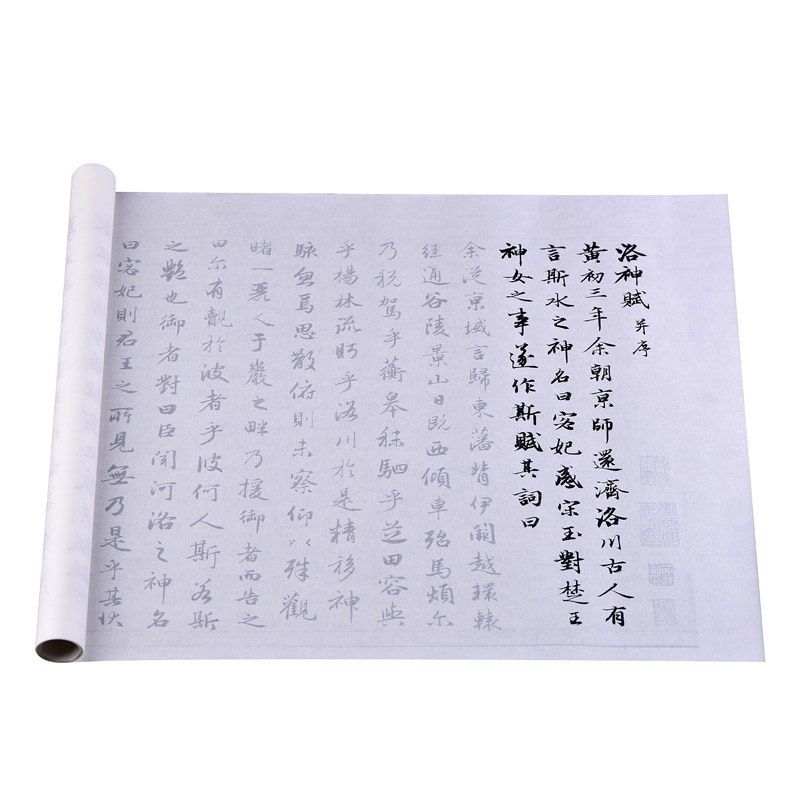 洛神賦 并序
黄初三年余朝京師還濟洛川古人有
言斯水之神名曰宓妃感宋玉對楚王
神女之事遂作斯賦其詞曰
余從京域言歸東藩背伊闕越轘轅
經通谷陵景山日既西傾車殆馬煩尔
乃税駕乎蘅皋秣駟乎芝田容與
乎楊林流眄乎洛川於是精移神
駭忽焉思散俯則未察仰以殊觀
睹一麗人于巖之畔乃援御者而告之
曰尔有覿於彼者乎彼何人斯若斯
之艷也御者對曰臣聞河洛之神名
曰宓妃則君王之所見無乃是乎其狀